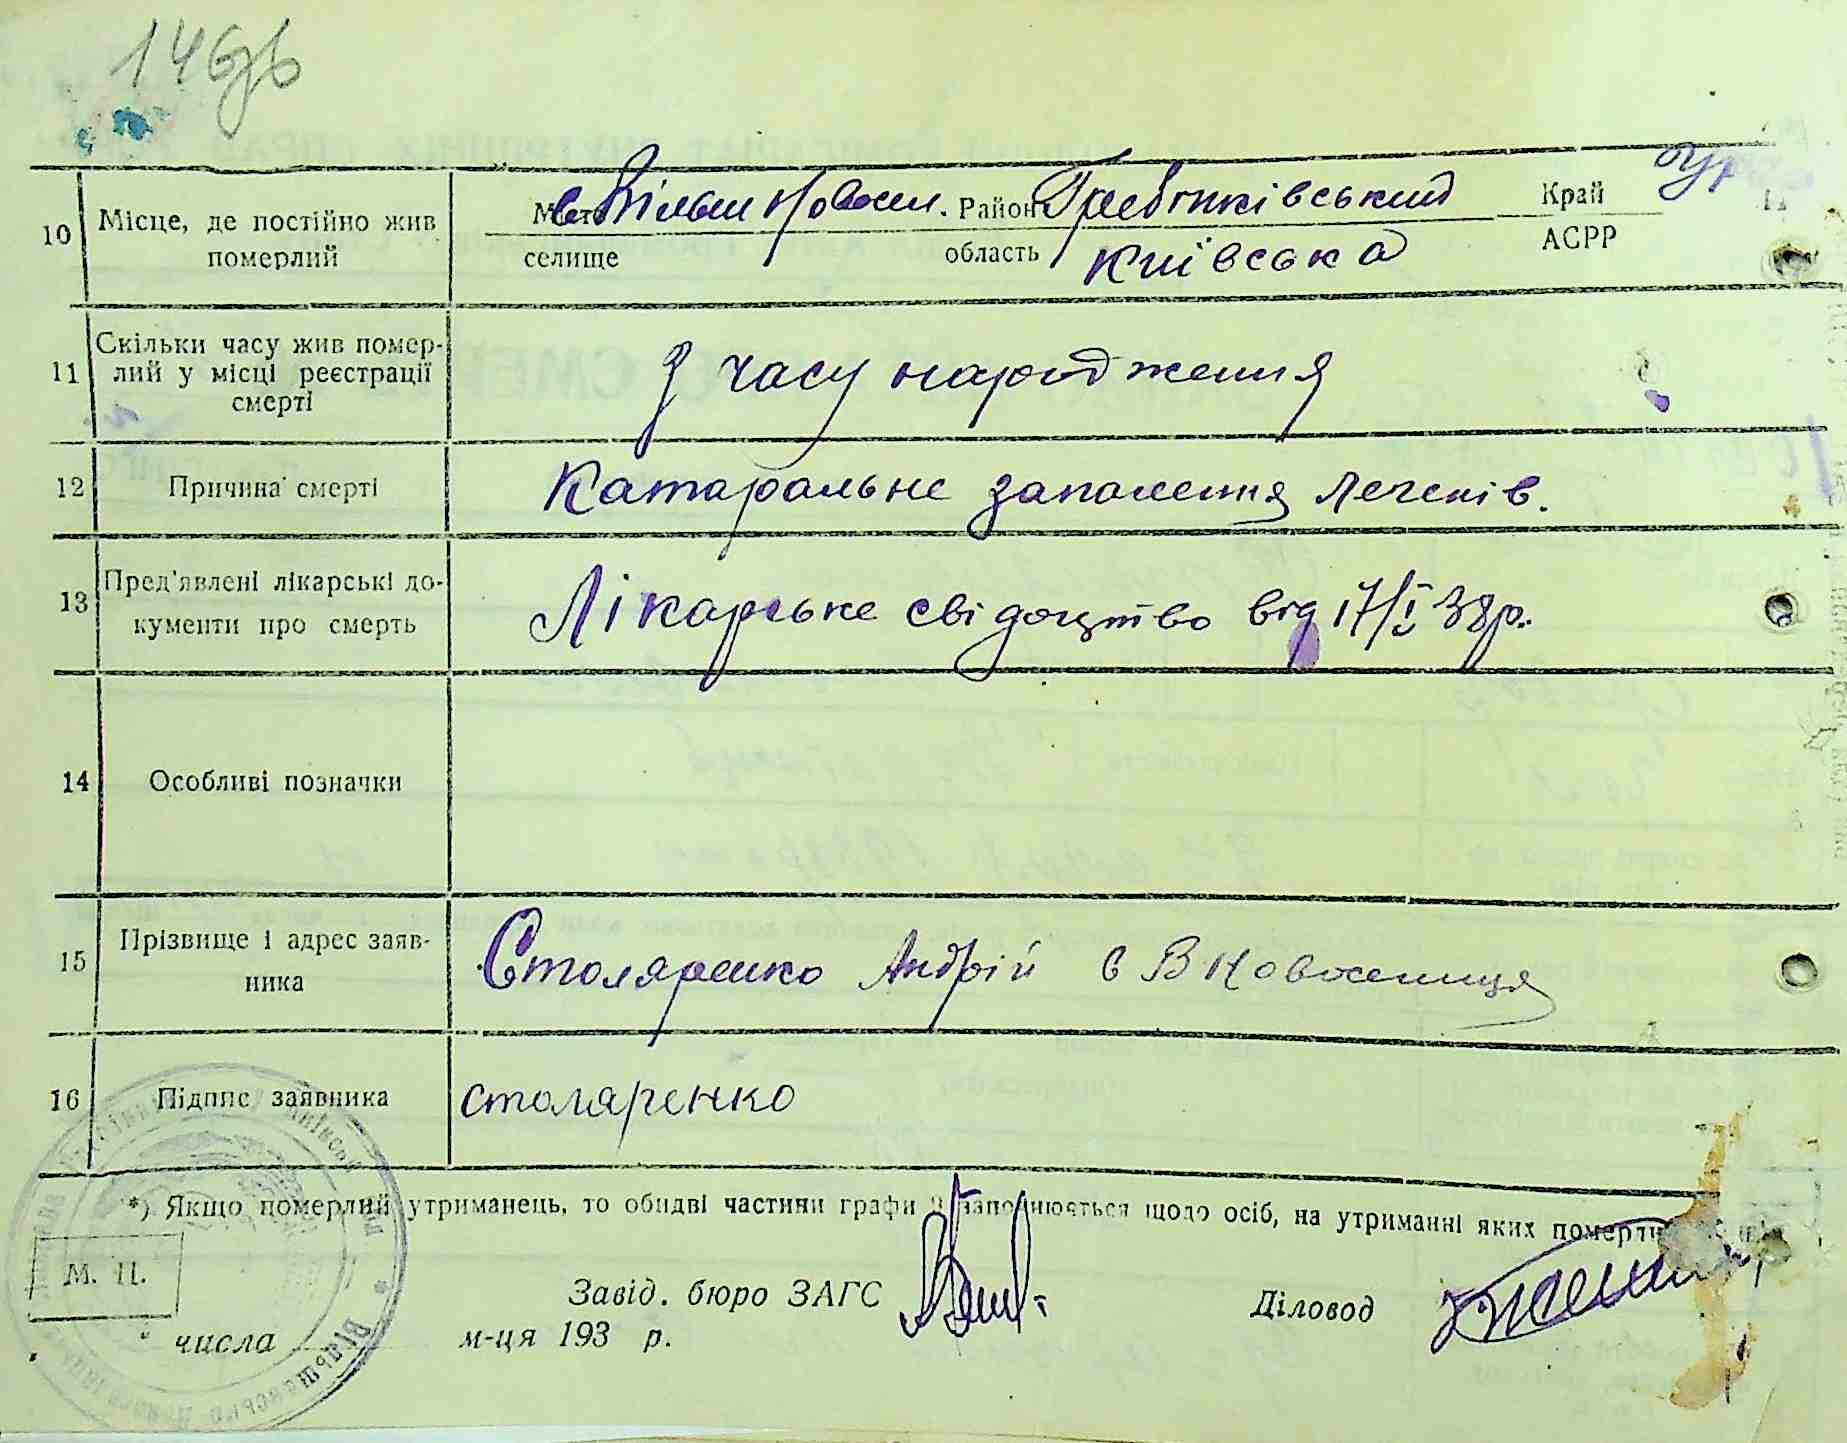 146зв
10 Місце, де постійно жив померлий
Місто с. Вільш Новосел. Район Гребінківський Край
селище область Київська АСРР
11 Скільки часу жив помер-
лий у місці реєстрації
смерті
З часу народження
12 Причина смерті Катаральне запалення легенів.
13 Пред'явлені лікарські до-
кументи про смерть
Лікарське свідоцтво від 17/I 38р.
14 Особливі позначки
15 Прізвище і адрес заяв-
ника
Столяренко Андрій с В Новоселиця
16 Підпис заявника столяренко
*) Якщо померлий утриманець, то обидві частини графи заповнюється щодо осіб, на утриманні яких
М. П.
Завід. бюро ЗАГС
Діловод
числа м-ця 193 р.